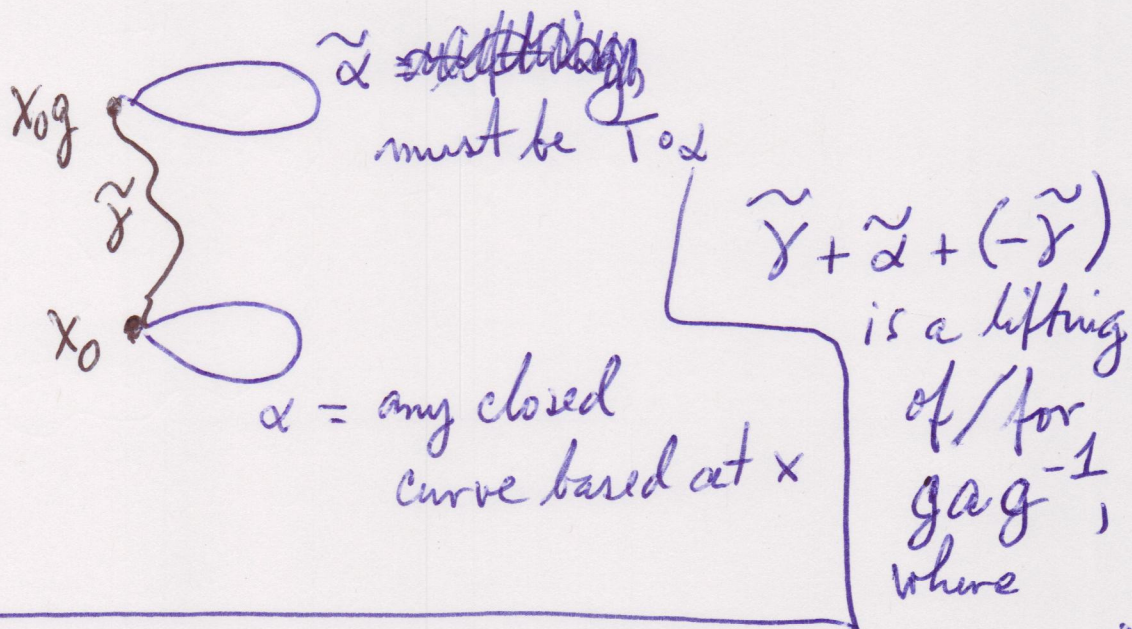 α̃
must be T∘α
x₀g
γ̃
x₀
α = any closed
curve based at x
γ̃ + α̃ + (-γ̃)
is a lifting
of/for
gag⁻¹,
where